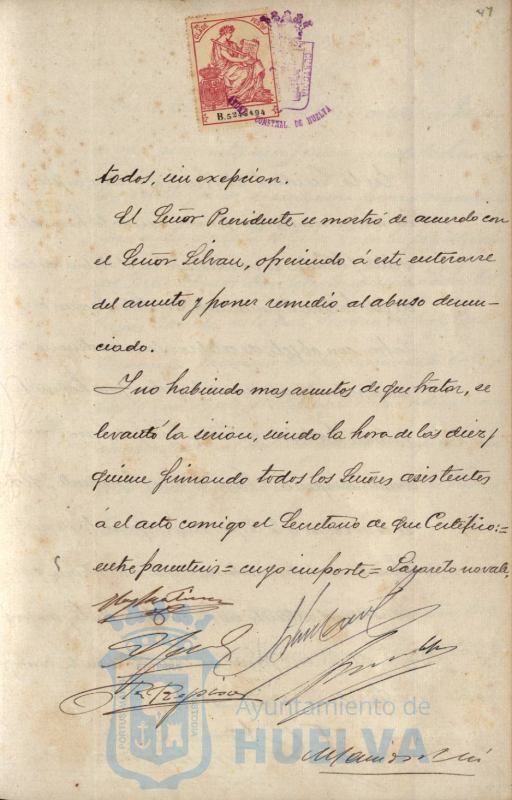 47
B.5248494
CONSTNAL. DE HUELVA
todos, sin exepcion.
El Señor Presidente se mostró de acuerdo con
el Señor Silvan, ofreciendo á este enterarse
del asunto y poner remedio al abuso denun-
ciado.
Y no habiendo mas asuntos de que tratar, se
levantó la sesion, siendo la hora de las diez y
quince firmando todos los Señores asistentes
á el acto comigo el Secretario de que Certifico:=
entre parentesis= cuyo importe= Lazareto no vale.
Ayuntamiento de
HUELVA